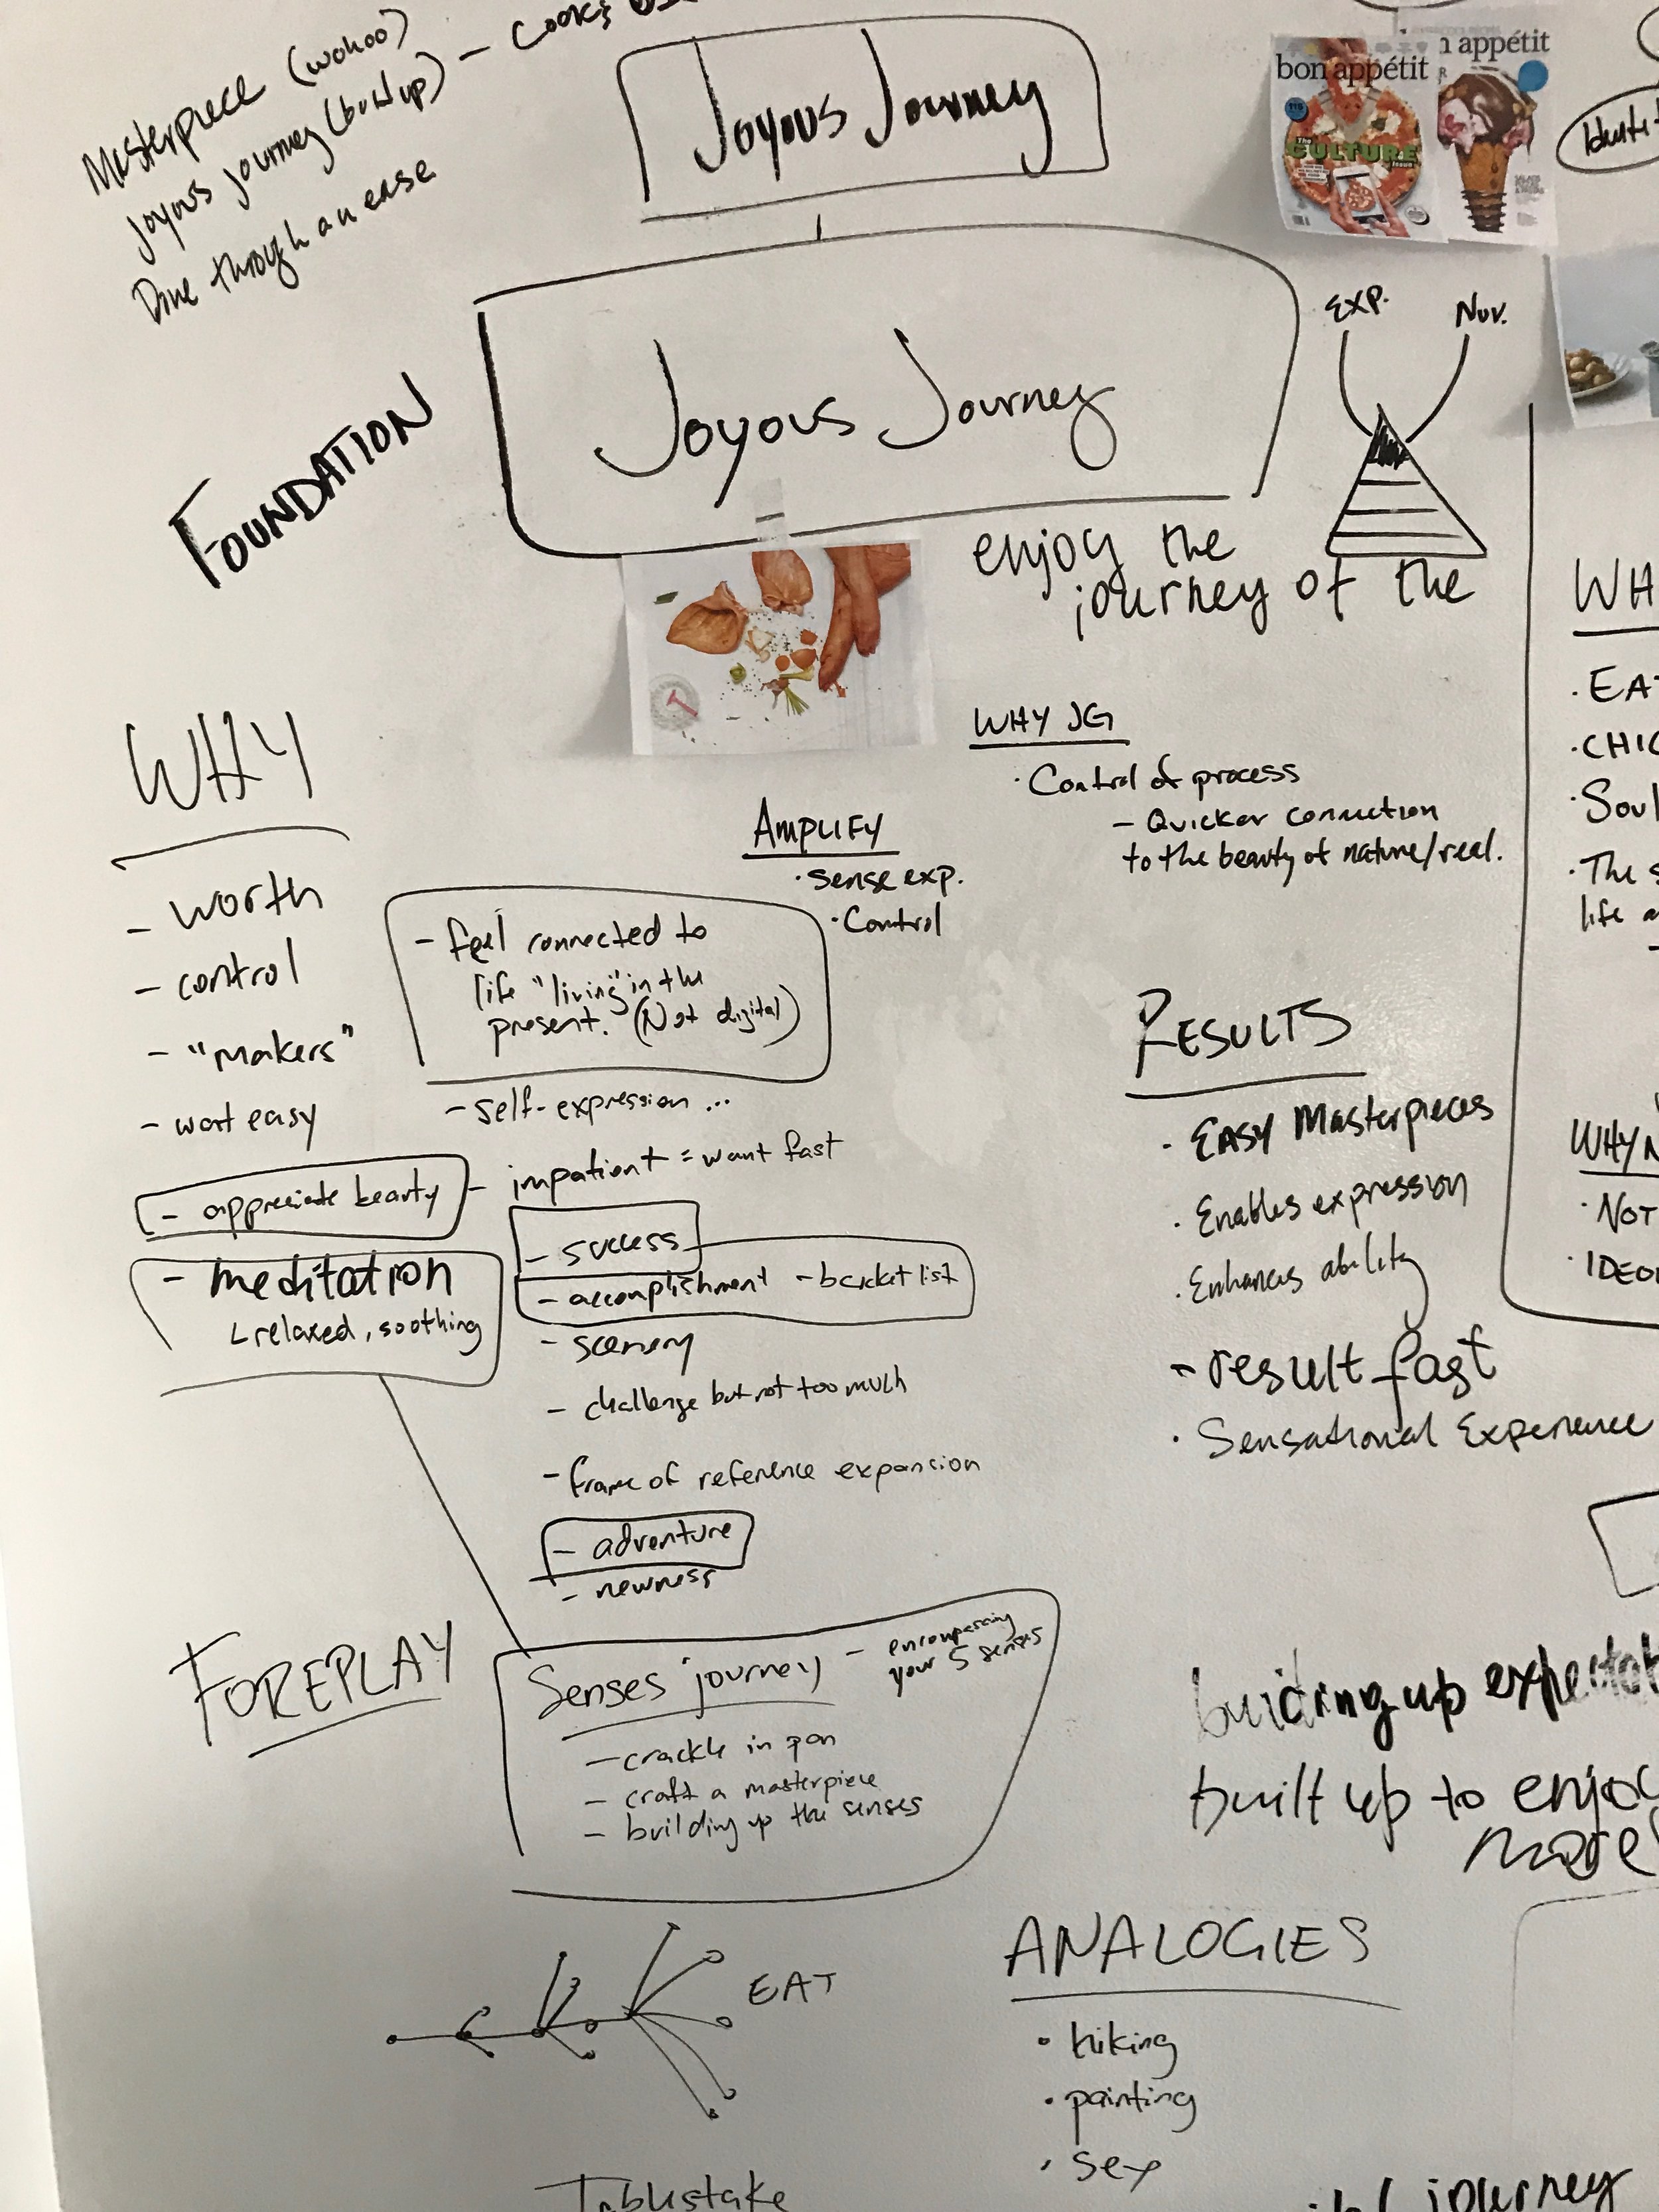 Masterpiece (wohoo)
Joyous journey (buildup) -
Dive through an ease
Joyous Journey
bon appétit
n appétit
The
CULTURE
Issue
FOUNDATION
Joyous Journey
EXP.
Nov.
enjoy the
journey of the
WHY
- worth
- control
- "makers"
- want easy
- appreciate beauty
- meditation
relaxed, soothing
- feel connected to
life "living" in the
present. (Not digital)
- self-expression ...
- impatient = want fast
- success
- accomplishment - bucket list
- scenery
- challenge but not too much
- frame of reference expansion
- adventure
- newness
AMPLIFY
· sense exp.
· Control
WHY JG
· Control of process
- Quicker connection
to the beauty of nature/real.
RESULTS
· EASY Masterpieces
· Enables expression
· Enhances ability
- result fast
· Sensational Experience
WH
· EAT
· CHIC
· Soul
· The s
life a
WHY N
· NOT
· IDEO
FOREPLAY
Senses journey - encompassing
your 5 senses
- crackle in pan
- craft a masterpiece
- building up the senses
building up expectat
built up to enjoy
more
EAT
ANALOGIES
· hiking
· painting
· sex
Tablestake
journey